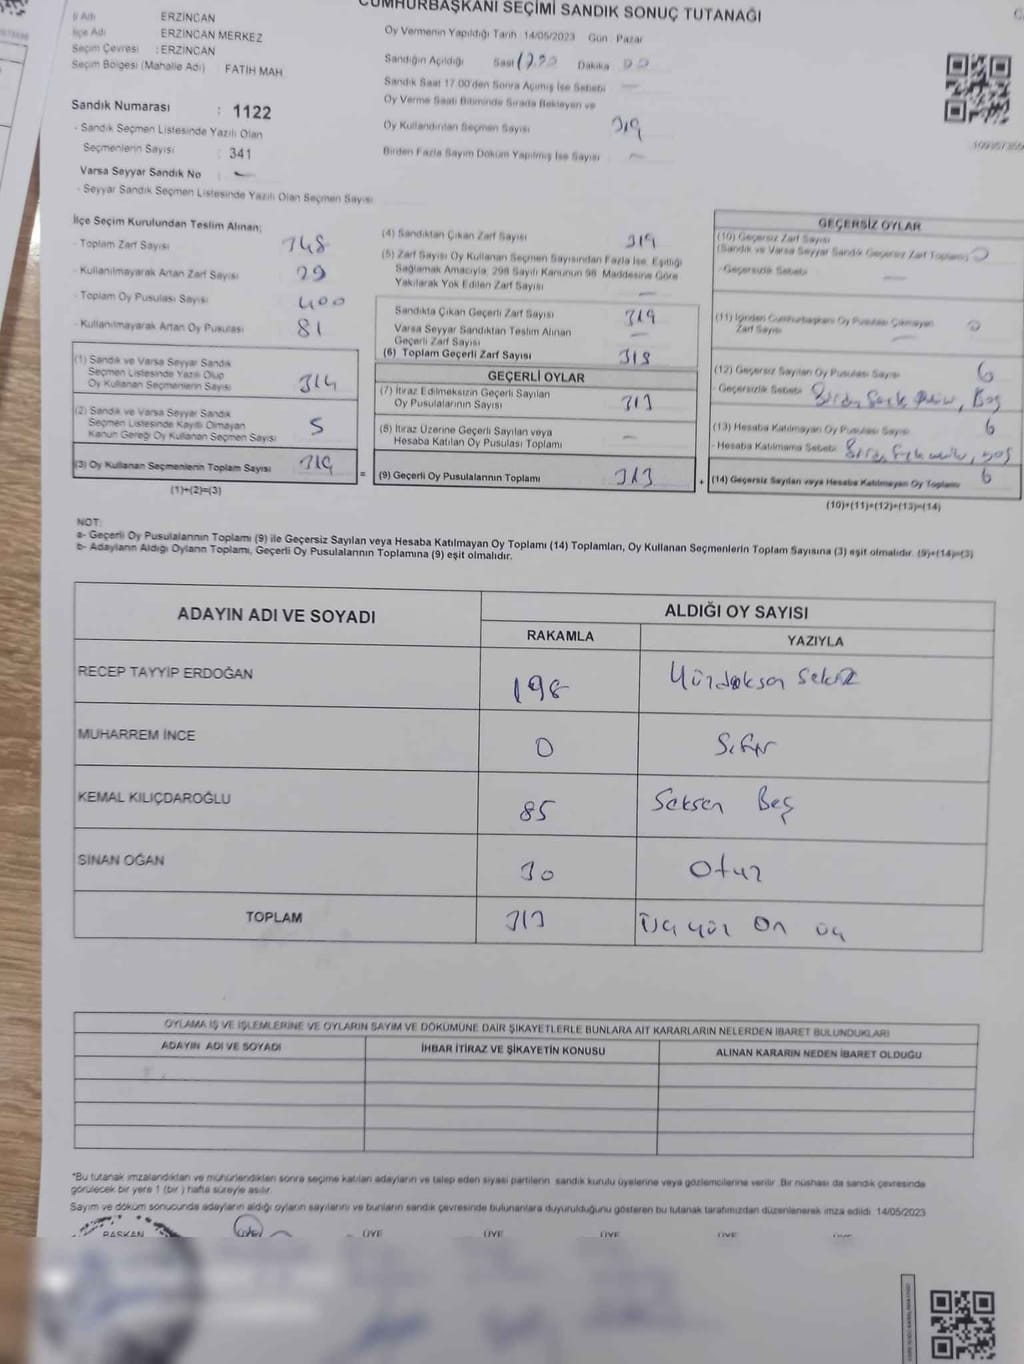 CUMHURBAŞKANI SEÇİMİ SANDIK SONUÇ TUTANAĞI
İl Adı ERZİNCAN
İlçe Adı ERZİNCAN MERKEZ
Seçim Çevresi : ERZİNCAN
Seçim Bölgesi (Mahalle Adı) FATİH MAH
Sandık Numarası : 1122
- Sandık Seçmen Listesinde Yazılı Olan
Seçmenlerin Sayısı : 341
Varsa Seyyar Sandık No
- Seyyar Sandık Seçmen Listesinde Yazılı Olan Seçmen Sayısı
Oy Vermenin Yapıldığı Tarih 14/05/2023 Gün Pazar
Sandığın Açıldığı Saat Dakika
Sandık Saat 17.00'den Sonra Açımış İse Sebebi
Oy Verme Saati Bitiminde Sırada Bekleyen ve
Oy Kullandırılan Seçmen Sayısı 319
Birden Fazla Sayım Döküm Yapılmış İse Sayısı
İlçe Seçim Kurulundan Teslim Alınan;
- Toplam Zarf Sayısı 348
- Kullanılmayarak Artan Zarf Sayısı 29
- Toplam Oy Pusulası Sayısı 400
- Kullanılmayarak Artan Oy Pusulası 81
(1) Sandık ve Varsa Seyyar Sandık
Seçmen Listesinde Yazılı Olup
Oy Kullanan Seçmenlerin Sayısı 314
(2) Sandık ve Varsa Seyyar Sandık
Seçmen Listesinde Kayıtlı Olmayan
Kanun Gereği Oy Kullanan Seçmen Sayısı 5
(3) Oy Kullanan Seçmenlerin Toplam Sayısı 319
(1)+(2)=(3)
=
(4) Sandıktan Çıkan Zarf Sayısı 319
(5) Zarf Sayısı Oy Kullanan Seçmen Sayısından Fazla İse, Eşitliği
Sağlamak Amacıyla, 298 Sayılı Kanunun 98. Maddesine Göre
Yakılarak Yok Edilen Zarf Sayısı —
Sandıkta Çıkan Geçerli Zarf Sayısı 319
Varsa Seyyar Sandıktan Teslim Alınan
Geçerli Zarf Sayısı —
(6) Toplam Geçerli Zarf Sayısı
GEÇERLİ OYLAR
(7) İtiraz Edilmeksizin Geçerli Sayılan
Oy Pusulalarının Sayısı 313
(8) İtiraz Üzerine Geçerli Sayılan veya
Hesaba Katılan Oy Pusulası Toplamı —
(9) Geçerli Oy Pusulalarının Toplamı 313
+
GEÇERSİZ OYLAR
(10) Geçersiz Zarf Sayısı
(Sandık ve Varsa Seyyar Sandık Geçersiz Zarf Toplamı) 0
- Geçersizlik Sebebi —
(11) İçinden Cumhurbaşkanı Oy Pusulası Çıkmayan
Zarf Sayısı 0
(12) Geçersiz Sayılan Oy Pusulası Sayısı 6
- Geçersizlik Sebebi Boş
(13) Hesaba Katılmayan Oy Pusulası Sayısı 6
- Hesaba Katılmama Sebebi
(14) Geçersiz Sayılan veya Hesaba Katılmayan Oy Toplamı 6
(10)+(11)+(12)+(13)=(14)
NOT:
a- Geçerli Oy Pusulalarının Toplamı (9) ile Geçersiz Sayılan veya Hesaba Katılmayan Oy Toplamı (14) Toplamları, Oy Kullanan Seçmenlerin Toplam Sayısına (3) eşit olmalıdır. (9)+(14)=(3)
b- Adayların Aldığı Oyların Toplamı, Geçerli Oy Pusulalarının Toplamına (9) eşit olmalıdır.
ADAYIN ADI VE SOYADI ALDIĞI OY SAYISI
RAKAMLA YAZIYLA
RECEP TAYYİP ERDOĞAN 198 Yüzdoksan Sekiz
MUHARREM İNCE 0 Sıfır
KEMAL KILIÇDAROĞLU 85 Seksen Beş
SİNAN OĞAN 30 Otuz
TOPLAM 313 Üçyüz On üç
OYLAMA İŞ VE İŞLEMLERİNE VE OYLARIN SAYIM VE DÖKÜMÜNE DAİR ŞİKAYETLERLE BUNLARA AİT KARARLARIN NELERDEN İBARET BULUNDUKLARI
ADAYIN ADI VE SOYADI İHBAR İTİRAZ VE ŞİKAYETİN KONUSU ALINAN KARARIN NEDEN İBARET OLDUĞU
*Bu tutanak imzalandıktan ve mühürlendikten sonra seçime katılan adayların ve talep eden siyasi partilerin sandık kurulu üyelerine veya gözlemcilerine verilir. Bir nüshası da sandık çevresinde
görülecek bir yere 1 (bir) hafta süreyle asılır.
Sayım ve döküm sonucunda adayların aldığı oyların sayılarını ve bunların sandık çevresinde bulunanlara duyurulduğunu gösteren bu tutanak tarafımızdan düzenlenerek imza edildi. 14/05/2023
BAŞKAN ÜYE ÜYE ÜYE ÜYE